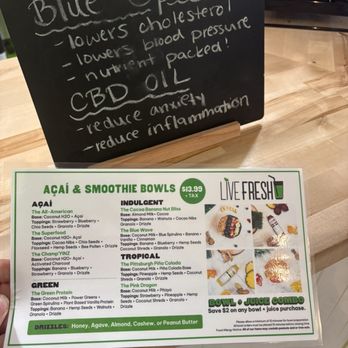 Blue
- lowers cholesterol
- lowers blood pressure
- nutrient packed!
CBD OIL
- reduce anxiety
- reduce inflammation
AÇAÍ & SMOOTHIE BOWLS
$13.99
+ TAX
AÇAÍ
The All-American
Base: Coconut H2O • Açaí
Toppings: Strawberry • Blueberry •
Chia Seeds • Granola • Drizzle
The Superfood
Base: Coconut H2O • Açaí
Toppings: Cacao Nibs • Chia Seeds •
Flaxseed • Hemp Seeds • Bee Pollen • Drizzle
The Champ'YINZ
Base: Coconut H2O • Açaí •
Activated Charcoal
Toppings: Banana • Strawberry •
Blueberry • Granola • Drizzle
GREEN
The Green Protein
Base: Coconut Milk • Power Greens •
Green Spirulina • Plant Based Vanilla Protein
Toppings: Banana • Hemp Seeds • Walnuts •
Granola • Drizzle
INDULGENT
The Cocoa Banana Nut Bliss
Base: Almond Milk • Cacao
Toppings: Banana • Walnuts • Cacao Nibs
Granola • Drizzle
The Blue Wave
Base: Coconut Milk • Blue Spirulina • Banana •
Vanilla • Cinnamon
Toppings: Banana • Blueberry • Hemp Seeds
Coconut Shreds • Granola • Drizzle
TROPICAL
The Pittsburgh Piña Colada
Base: Coconut Milk • Piña Colada Base
Toppings: Pineapple • Banana • Coconut
Shreds • Granola • Drizzle
The Pink Dragon
Base: Coconut Milk • Pitaya
Toppings: Strawberry • Pineapple • Hemp
Seeds • Coconut Shreds • Granola •
Drizzle
DRIZZLES: Honey, Agave, Almond, Cashew, or Peanut Butter
LIVE FRESH
BOWL + JUICE COMBO
Save $2 on any bowl + juice purchase.